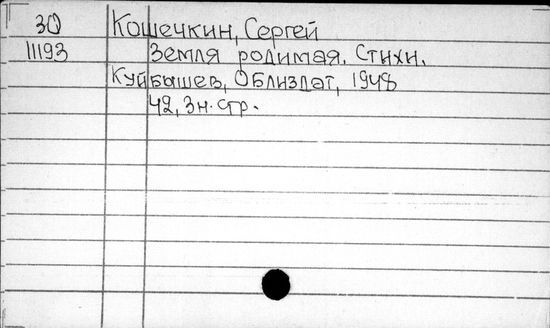 30 Кошечкин, Сергей
11193 Земля родимая. Стихи.
Куйбышев, Облиздат, 1948
42, 3 н. стр.